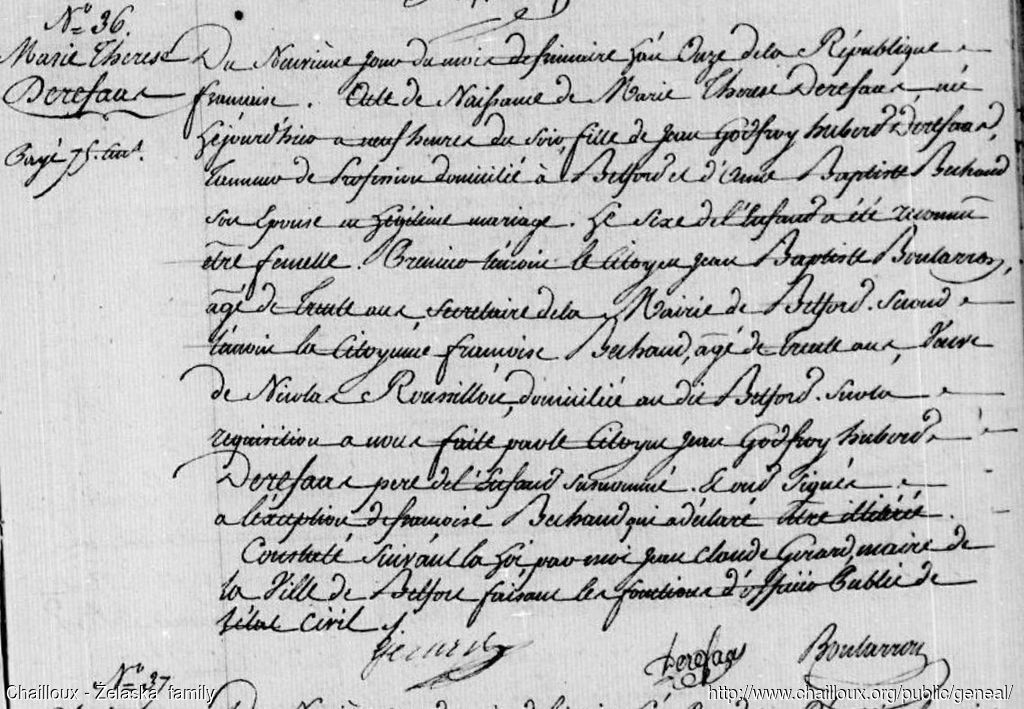 N.º 36.
Marie Therese
Derefaus
Payé 75. cent.
Du Neuvième jour du mois defrimaire l'án Onze dela République
francaise. Acte de Naissance de Marie Therese Derefaus née
Lejourd'hui a neuf heures du soir, fille de Jean Godfroy huberd Derefaus,
tanneur de Profession domicilié à Belford et d'Anne Baptiste Bechaud
son Epouse en Légitime mariage. Le Sexe del'Enfant a été reconnu
être femelle. Premier témoin le Citoyen Jean Baptiste Boularron,
agé de trente ans secretaire dela Mairie de Belford. Second
témoin la Citoyenne francoise Bechaud, agé de trente ans, Veuve
de Nicolas Roussillon, domiciliée au dit Belford. Surla
requisition a nous faite parle Citoyen Jean Godfroy huberd
Derefaus pere del'Enfant surnommé. Et ont Signés
a l'éxception defrancoise Bechaud qui a déclaré être illitéré.
Constaté suivánt la Loi par moi Jean Claude Gerard, maire de
la Ville de Belfort faisant les fonctions d'officier Public de
l'état Civil
Gerard
Derefaus
Boularron
N.º 37
Chailloux - Żelaska family
http://www.chailloux.org/public/geneal/